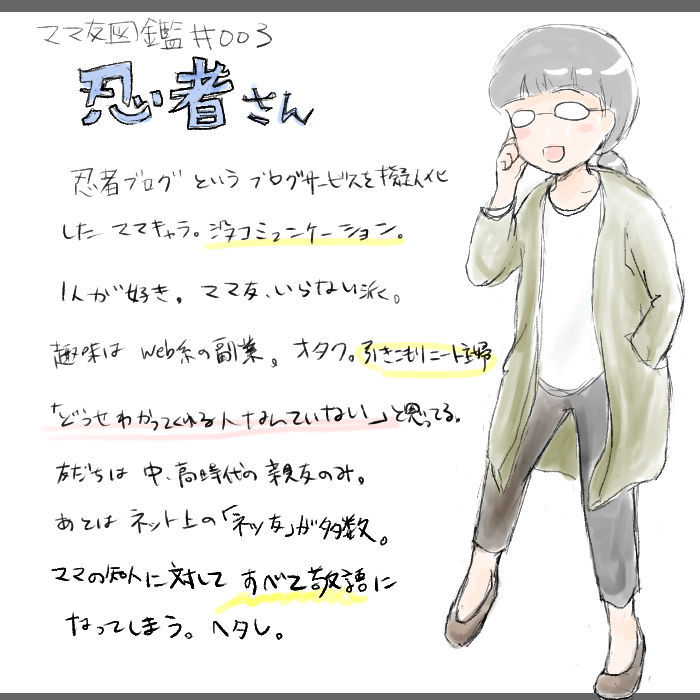 ママ友図鑑#003
忍者さん
忍者ブログというブログサービスを擬人化
したママキャラ。没コミュンケーション。
1人が好き。ママ友、いらない派。
趣味はWeb系の副業。オタク。引きこもりニート主婦
「どうせわかってくれる人なんていない」と思ってる。
友だちは中、高時代の親友のみ。
あとはネット上の「ネッ友」が多数。
ママの知人に対してすべて敬語に
なってしまう。ヘタレ。